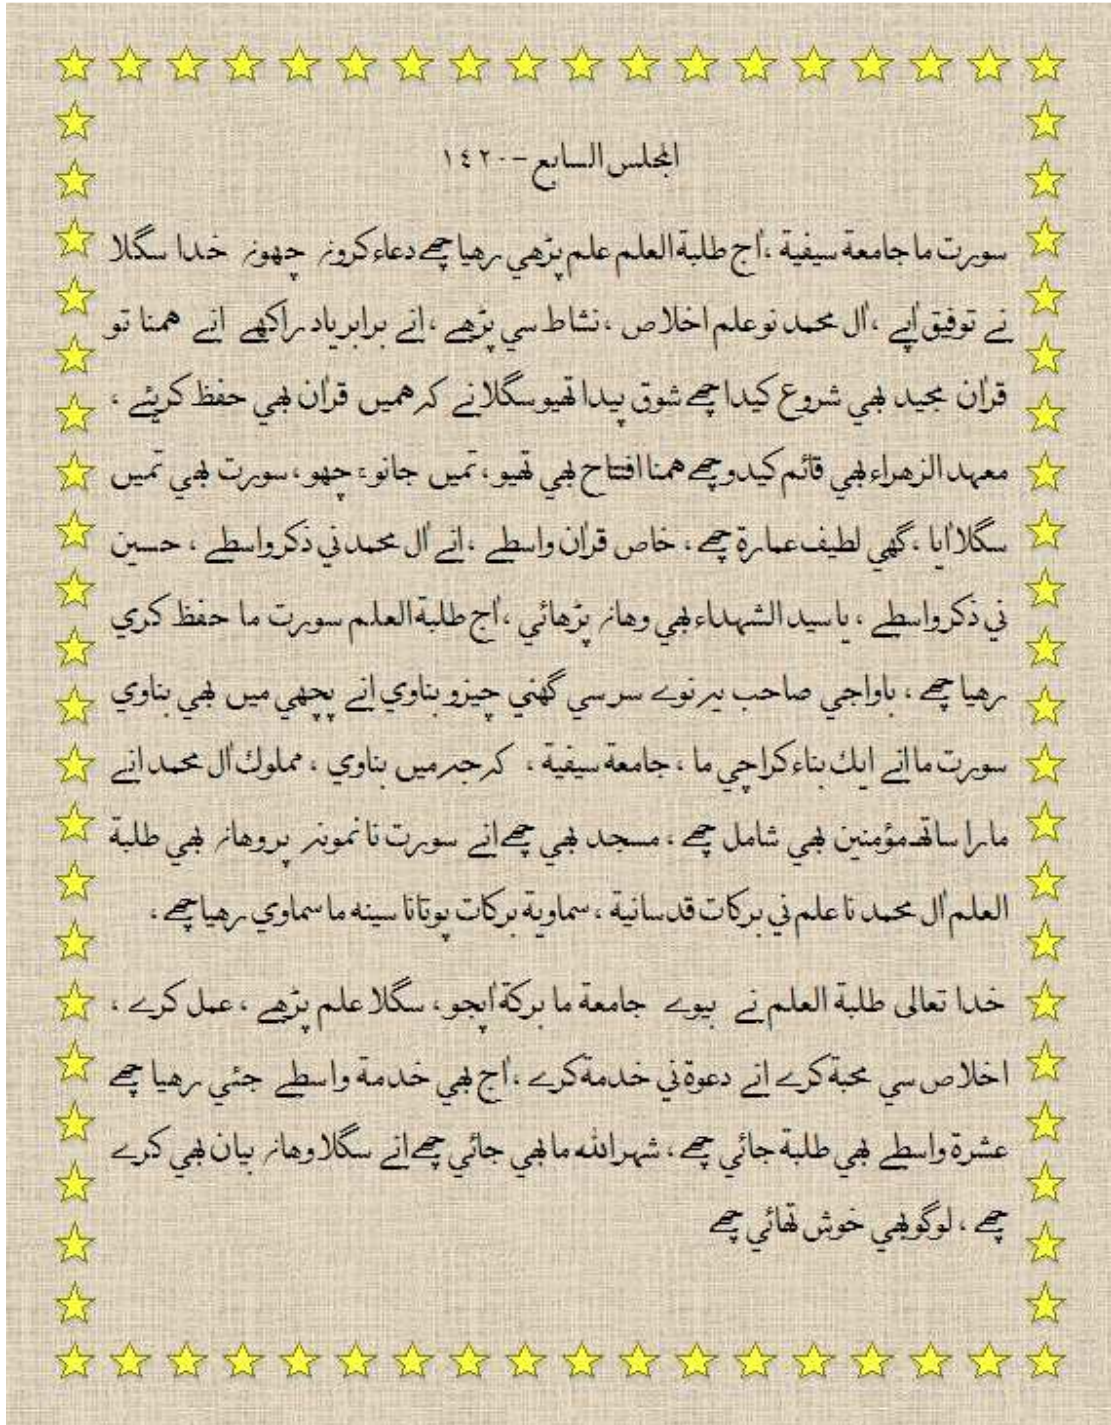 المجلس السابع - ١٤٢٠
سورت ما جامعة سيفية ، اٰج طلبة العلم علم پڑهي رهيا چھے دعاء كروں چھوں خدا سگلا
نے توفيق اٰپے ، اٰل محمد نو علم اخلاص ، نشاط سي پڑهے ، انے برابر ياد راكهے انے همنا تو
قراٰن مجيد بھي شروع كيدا چھے شوق پيدا تھيو سگلا نے كہ هميں قراٰن بھي حفظ كريئے ،
معهد الزهراء بھي قائم كيدو چھے همنا افتتاح بھي تھيو ، تميں جانوء چھو ، سورت بھي تميں
سگلا اٰيا ، گھي لطيف عمارة چھے ، خاص قراٰن واسطے ، انے اٰل محمد ني ذكر واسطے ، حسين
ني ذكر واسطے ، يا سيد الشهداء بھي وهاں پڑهائي ، اٰج طلبة العلم سورت ما حفظ كري
رهيا چھے ، باواجي صاحب يہ نوے سر سي گھني چيزو بناوي انے پچھي ميں بھي بناوي
سورت ما انے ايك بناء كراچي ما ، جامعة سيفية ، كہ جہ ميں بناوي ، مملوك اٰل محمد انے
مارا ساتھ مؤمنين بھي شامل چھے ، مسجد بھي چھے انے سورت نا نمونہ پر وهاں بھي طلبة
العلم اٰل محمد نا علم ني بركات قدسانية ، سماوية بركات پوتانا سينه ما سماوي رهيا چھے ،
خدا تعالى طلبة العلم نے بيوے جامعة ما بركة اٰپجو ، سگلا علم پڑهے ، عمل كرے ،
اخلاص سي محبة كرے انے دعوة ني خدمة كرے ، اٰج بھي خدمة واسطے جئي رهيا چھے
عشرة واسطے بھي طلبة جائي چھے ، شهر الله ما بھي جائي چھے انے سگلا وهاں بيان بھي كرے
چھے ، لوگو بھي خوش تھائي چھے